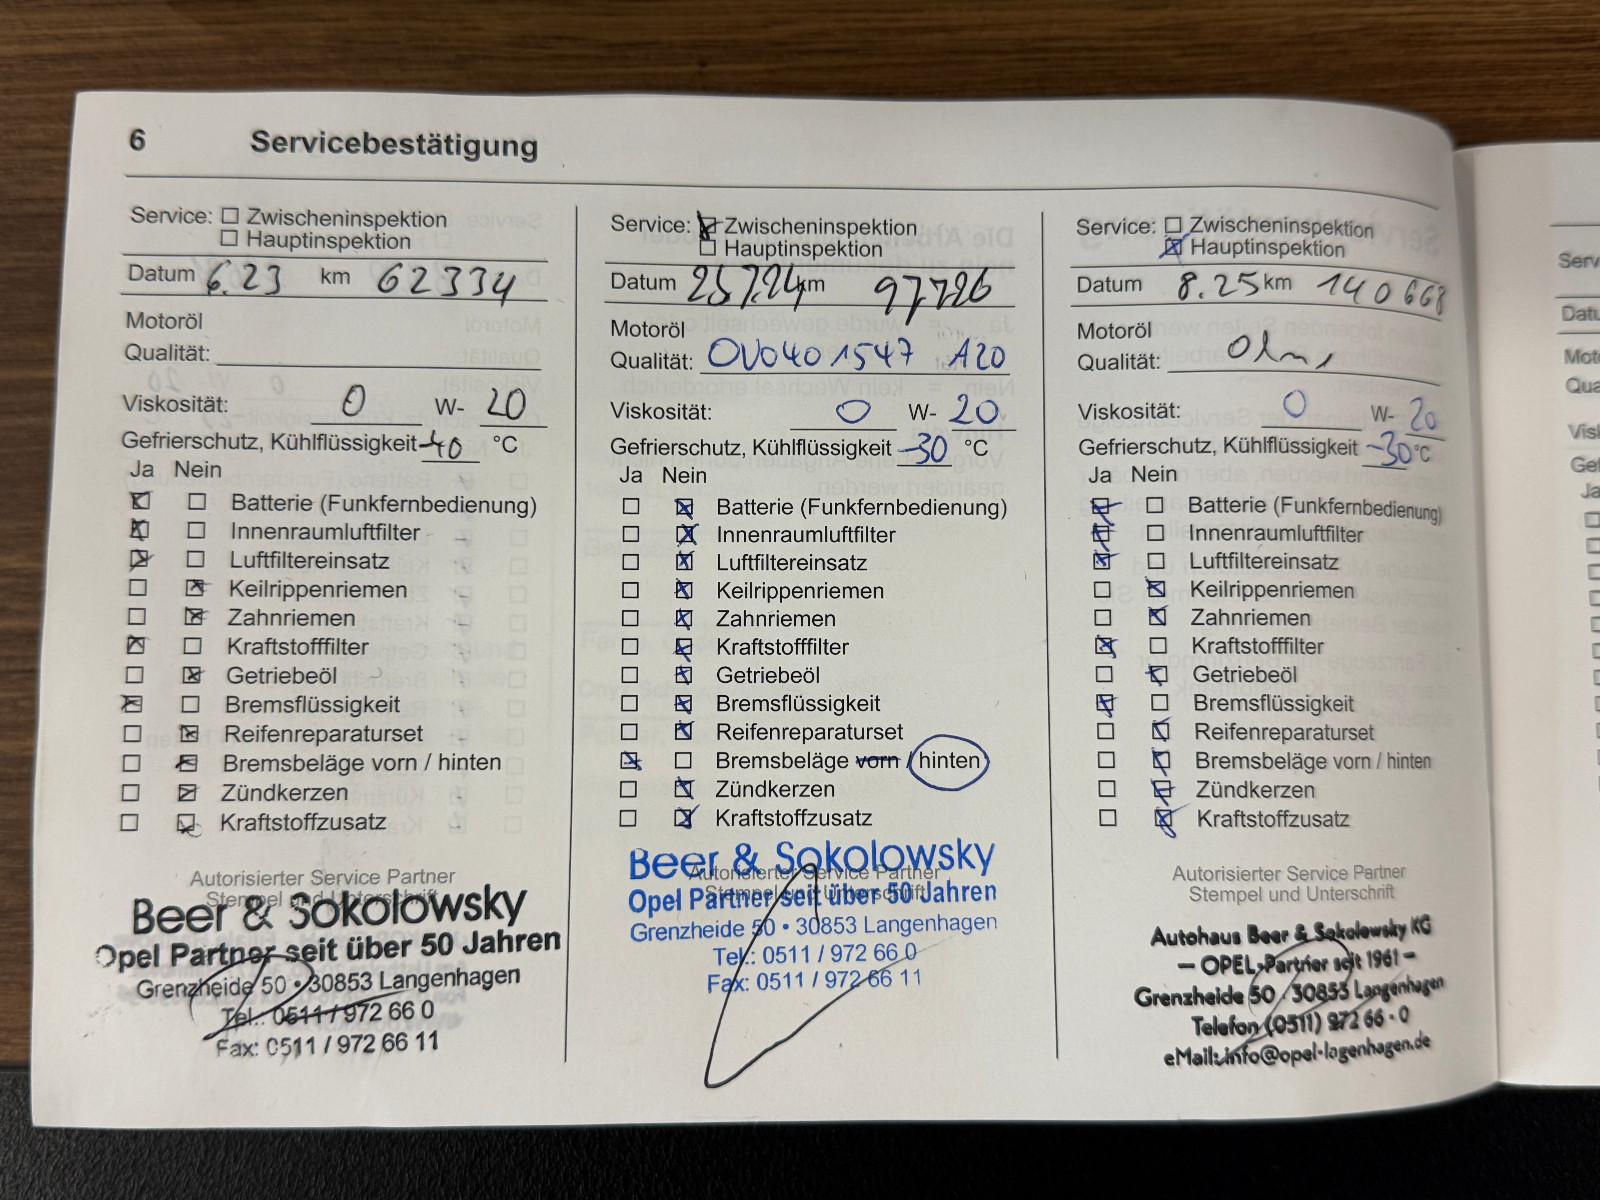 6 Servicebestätigung
Service: Zwischeninspektion
Hauptinspektion
Datum 6.23 km 62334
Motoröl
Qualität:
Viskosität: 0 W- 20
Gefrierschutz, Kühlflüssigkeit -40 °C
Ja Nein
Batterie (Funkfernbedienung)
Innenraumluftfilter
Luftfiltereinsatz
Keilrippenriemen
Zahnriemen
Kraftstofffilter
Getriebeöl
Bremsflüssigkeit
Reifenreparaturset
Bremsbeläge vorn / hinten
Zündkerzen
Kraftstoffzusatz
Autorisierter Service Partner
Stempel und Unterschrift
Beer & Sokolowsky
Opel Partner seit über 50 Jahren
Grenzheide 50 • 30853 Langenhagen
Tel.: 0511 / 972 66 0
Fax: 0511 / 972 66 11
Service: Zwischeninspektion
Hauptinspektion
Datum 25.7.24 km 97726
Motoröl
Qualität: OV0401547 A20
Viskosität: 0 W- 20
Gefrierschutz, Kühlflüssigkeit -30 °C
Ja Nein
Batterie (Funkfernbedienung)
Innenraumluftfilter
Luftfiltereinsatz
Keilrippenriemen
Zahnriemen
Kraftstofffilter
Getriebeöl
Bremsflüssigkeit
Reifenreparaturset
Bremsbeläge vorn / hinten
Zündkerzen
Kraftstoffzusatz
Autorisierter Service Partner
Stempel und Unterschrift
Beer & Sokolowsky
Opel Partner seit über 50 Jahren
Grenzheide 50 • 30853 Langenhagen
Tel.: 0511 / 972 66 0
Fax: 0511 / 972 66 11
Service: Zwischeninspektion
Hauptinspektion
Datum 8.25 km 140668
Motoröl
Qualität:
Viskosität: 0 W- 20
Gefrierschutz, Kühlflüssigkeit -30 °C
Ja Nein
Batterie (Funkfernbedienung)
Innenraumluftfilter
Luftfiltereinsatz
Keilrippenriemen
Zahnriemen
Kraftstofffilter
Getriebeöl
Bremsflüssigkeit
Reifenreparaturset
Bremsbeläge vorn / hinten
Zündkerzen
Kraftstoffzusatz
Autorisierter Service Partner
Stempel und Unterschrift
Autohaus Beer & Sokolowsky KG
– OPEL-Partner seit 1961 –
Grenzheide 50 · 30853 Langenhagen
Telefon (0511) 972 66 - 0
eMail: info@opel-lagenhagen.de